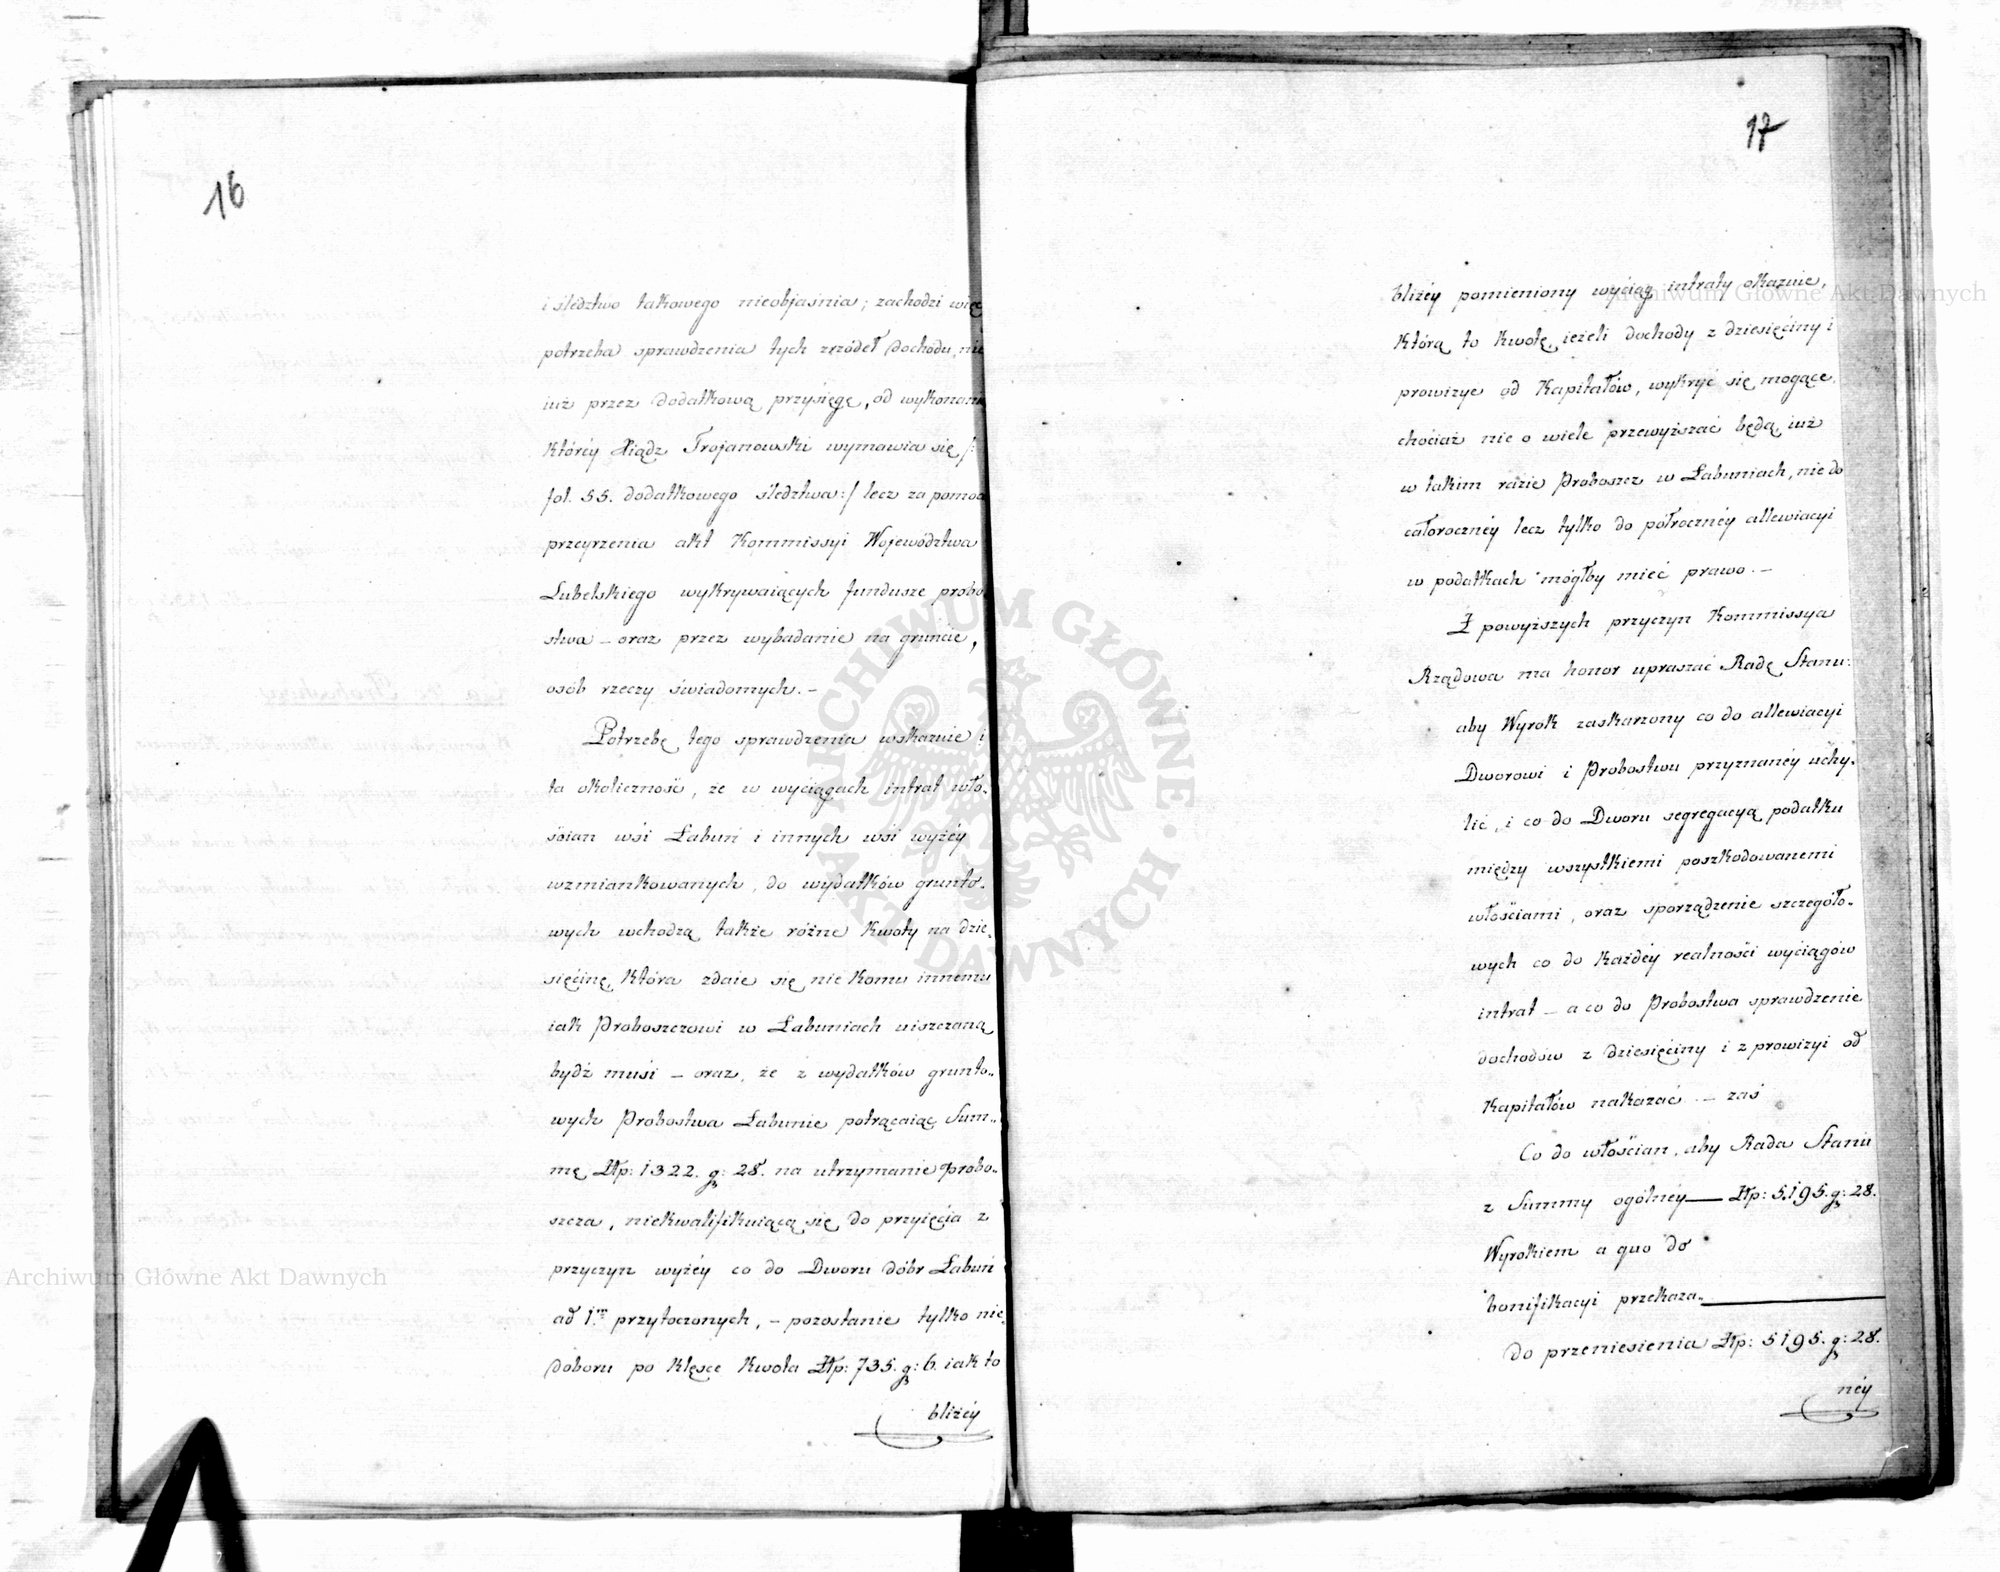 16
i śledztwo takowego nieobjaśnia; zachodzi więc
potrzeba sprawdzenia tych zrzódeł dochodu, nie
iuż przez dodatkową przysięgę, od wykonania
któréy Xiądz Trojanowski wymawia się /:
fol. 55. dodatkowego śledztwa:/ lecz za pomocą
przeyrzenia akt Kommissyi Województwa
Lubelskiego wykrywaiących fundusze probo
stwa – oraz przez wybadanie na gruncie,
osób rzeczy świadomych. –
Potrzebę tego sprawdzenia wskazuie i
ta okoliczność, że w wyciągach intrat wło-
ścian wśi Łabuń i innych wśi wyżéy
wzmiankowanych, do wydatków grunto-
wych wchodzą także różne kwoty na dzie-
sięcinę, która zdaie się nie komu innemu
iak Proboszczowi w Łabuniach uiszczaną
bydź musi – oraz, że z wydatków grunto-
wych Probostwa Łabunie potrącaiąc Sum-
mę Złp: 1322. g: 28. na utrzymanie probo-
szcza, niekwalifikuiącą się do przyięcia z
przyczyn wyżéy co do Dworu dóbr Łabuń
ad 1m przytoczonych, – pozostanie tylko nie
doboru po klęsce kwota Złp: 735. g: 6. iak to
bliżéy
17
bliżéy pomieniony wyciąg intraty okazuie,
którą to kwotę, ieżeli dochody z dziesięciny i
prowizye od kapitałów, wykryć się mogące,
chociaż nie o wiele przewyższać będą, iuż
w takim razie Proboszcz w Łabuniach, nie do
całorocznéy lecz tylko do półrocznéy allewiacyi
w podatkach mógłby mieć prawo. –
Z powyższych przyczyn Kommissya
Rządowa ma honor upraszać Radę Stanu:
aby Wyrok zaskarżony co do allewiacyi
Dworowi i Probostwu przyznanéy uchy-
lić, i co do Dworu segregacyą podatku
między wszystkiemi poszkodowanemi
włościami, oraz sporządzenie szczegóło-
wych co do każdéy realności wyciągów
intrat – a co do Probostwa sprawdzenie
dochodów z dziesięciny i z prowizyi od
kapitałów nakazać. – zaś
Co do włościan, aby Rada Stanu
z Summy ogólnéy — Złp: 5195. g: 28.
Wyrokiem a quo do
bonifikacyi przekaza-
do przeniesienia Złp: 5195. g: 28.
néy
Archiwum Główne Akt Dawnych
Archiwum Główne Akt Dawnych
ARCHIWUM GŁÓWNE · AKT DAWNYCH ·